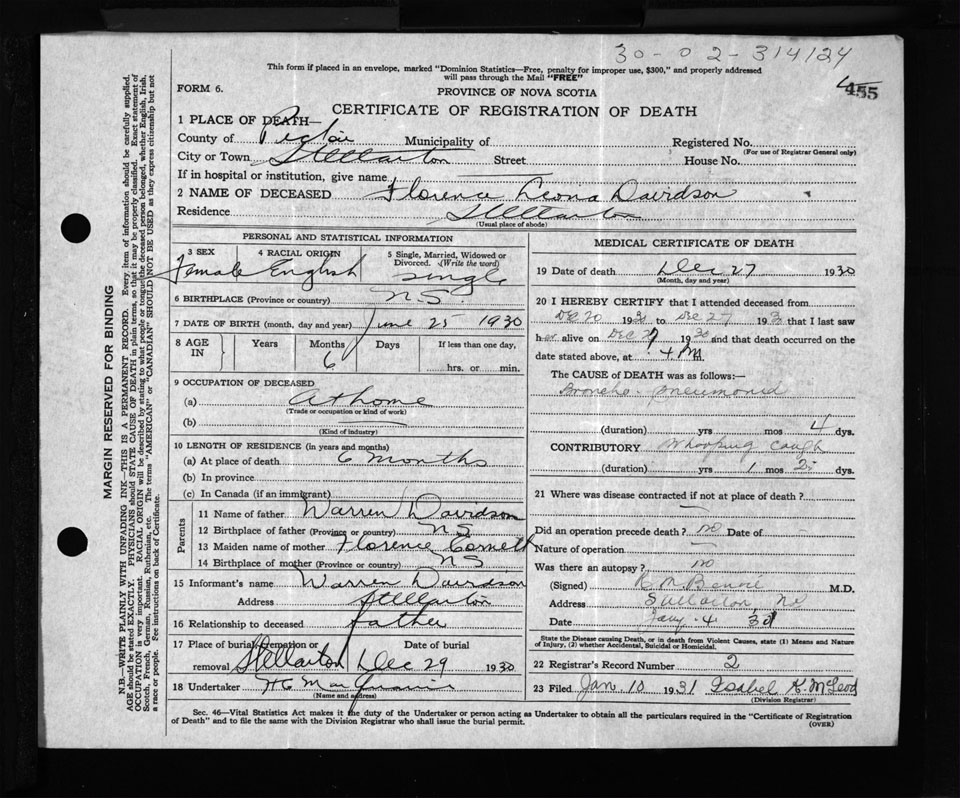 30-02-314124
This form if placed in an envelope, marked "Dominion Statistics—Free, penalty for improper use, $300," and properly addressed
will pass through the Mail "FREE"
FORM 6.
PROVINCE OF NOVA SCOTIA
455
CERTIFICATE OF REGISTRATION OF DEATH
1 PLACE OF DEATH—
County of Pictou Municipality of Registered No.
(For use of Registrar General only)
City or Town Stellarton Street House No.
If in hospital or institution, give name
2 NAME OF DECEASED Florence Leona Davidson
Residence Stellarton
(Usual place of abode)
PERSONAL AND STATISTICAL INFORMATION
3 SEX 4 RACIAL ORIGIN 5 Single, Married, Widowed or
Divorced. (Write the word)
Female English Single
6 BIRTHPLACE (Province or country) N.S.
7 DATE OF BIRTH (month, day and year) June 25 1930
8 AGE IN Years Months Days If less than one day,
6 hrs. or min.
9 OCCUPATION OF DECEASED
(a) At home
(Trade or occupation or kind of work)
(b)
(Kind of industry)
10 LENGTH OF RESIDENCE (in years and months)
(a) At place of death 6 months
(b) In province
(c) In Canada (if an immigrant)
Parents
11 Name of father Warren Davidson
12 Birthplace of father (Province or country) N S
13 Maiden name of mother Florence
14 Birthplace of mother (Province or country) N S
15 Informant's name Warren Davidson
Address Stellarton
16 Relationship to deceased Father
17 Place of burial, cremation or Date of burial
removal Stellarton Dec 29 1930
18 Undertaker
(Name and address)
MEDICAL CERTIFICATE OF DEATH
19 Date of death Dec 27 1930
(Month, day and year)
20 I HEREBY CERTIFY that I attended deceased from
Dec 20 1930 to Dec 27 1930 that I last saw
her alive on Dec 27 1930 and that death occurred on the
date stated above, at 4 M.
The CAUSE OF DEATH was as follows:—
Broncho-pneumonia
(duration) yrs mos 4 dys.
CONTRIBUTORY Whooping Cough
(duration) yrs 1 mos dys.
21 Where was disease contracted if not at place of death?
Did an operation precede death? no Date of -
Nature of operation —
Was there an autopsy? no
(Signed) M.D.
Address Stellarton NS
Date Jany. 4 31
State the Disease causing Death, or in death from Violent Causes, state (1) Means and Nature
of Injury, (2) whether Accidental, Suicidal or Homicidal.
22 Registrar's Record Number 2
23 Filed Jan 10 1931 Isabel K. McLeod
(Division Registrar)
Sec. 46—Vital Statistics Act makes it the duty of the Undertaker or person acting as Undertaker to obtain all the particulars required in the "Certificate of Registration
of Death" and to file the same with the Division Registrar who shall issue the burial permit.
(OVER)
MARGIN RESERVED FOR BINDING
N.B.—WRITE PLAINLY WITH UNFADING INK—THIS IS A PERMANENT RECORD. Every item of information should be carefully supplied.
AGE should be stated EXACTLY. PHYSICIANS should STATE CAUSE OF DEATH in plain terms, so that it may be properly classified. Exact statement of
OCCUPATION is very important. RACIAL ORIGIN will be described by stating to what people or tongue the deceased person belonged, whether English, Irish,
Scotch, French, German, Russian, Ruthenian, etc. The terms "AMERICAN" or "CANADIAN" SHOULD NOT BE USED as they express citizenship but not
a race or people. See instructions on back of Certificate.